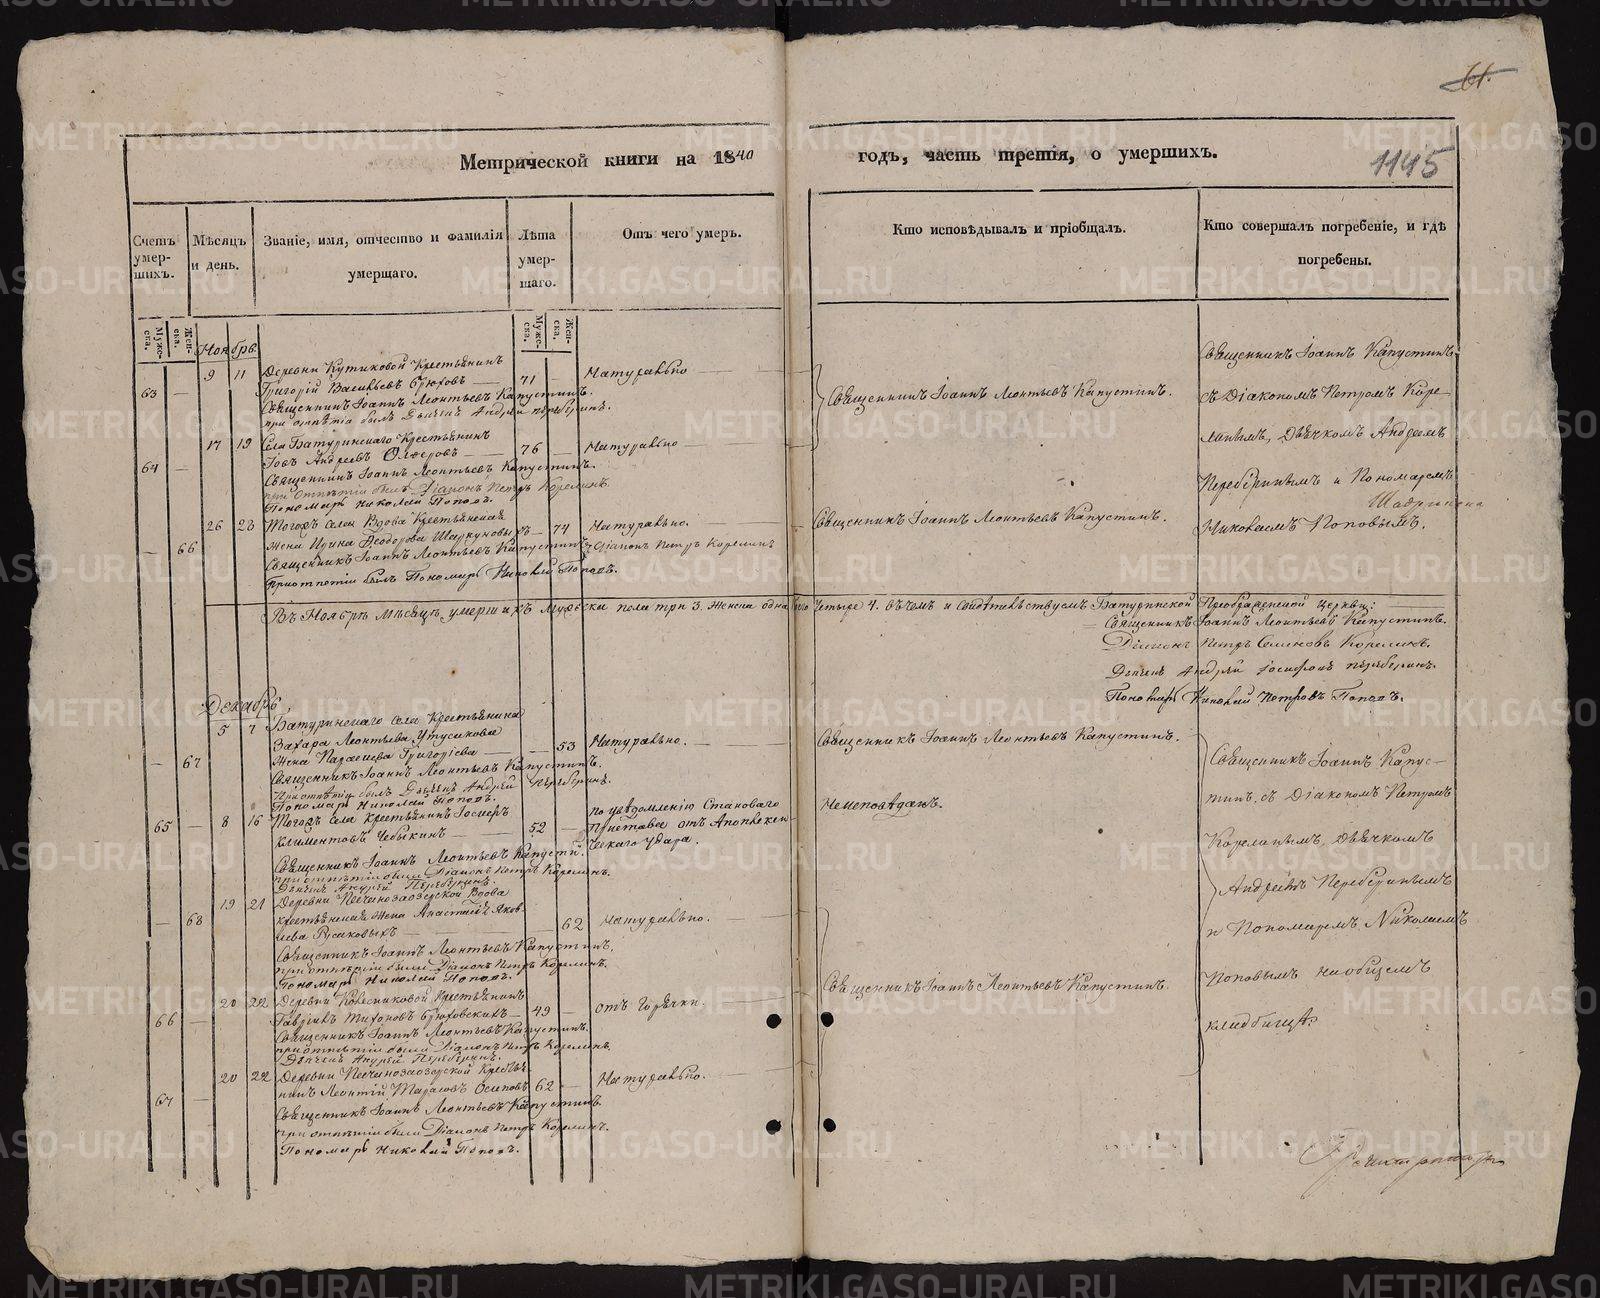 61.
1145
Метрической книги на 1840 годъ, часть третія, о умершихъ.
Счетъ умер-
шихъ.
Мѣсяцъ
и день.
Званіе, имя, отчество и фамилія
умершаго.
Лѣта
умер-
шаго.
Отъ чего умеръ.
Кто исповѣдывалъ и пріобщалъ.
Кто совершалъ погребеніе, и гдѣ
погребены.
Муже-
ска.
Жен-
ска.
Муже-
ска.
Жен-
ска.
Ноябрь.
63 — 9 11 Деревни Кутиковой Крестьянинъ
Григорій Васильевъ Брюховъ — 71 — Натурально
Священникъ Іоаннъ Леонтьевъ Капустинъ.
при отпѣтіи былъ Дьячекъ Андрей Переберинъ.
Священникъ Іоаннъ Леонтьевъ Капустинъ.
64 — 17 19 Села Батуринскаго Крестьянинъ
Іовъ Андреевъ — 76 — Натурально
Священникъ Іоаннъ Леонтьевъ Капустинъ.
при отпѣтіи былъ Діаконъ Петръ Корелинъ.
Пономарь Николай Поповъ.
— 66 26 28 Тогожъ села Вдова Крестьянская
жена Ирина Ѳеодорова — 74 Натурально.
Священникъ Іоаннъ Леонтьевъ Капустинъ. Діаконъ Петръ Корелинъ
При отпѣтіи былъ Пономарь Николай Поповъ.
Священникъ Іоаннъ Леонтьевъ Капустинъ.
Священникъ Іоаннъ Капустинъ
съ Діакономъ Петромъ Коре-
линымъ, Дьячкомъ Андреемъ
Переберинымъ и Пономаремъ
Николаемъ Поповымъ.
Шадринска
Въ Ноябрѣ мѣсяцѣ умершихъ мужеска пола три 3. женска одна Четыре 4. въ чемъ и свидѣтельствуемъ Батуринской Преображенской церкви:
Священникъ Іоаннъ Леонтьевъ Капустинъ.
Діаконъ Петръ Корелинъ.
Дьячекъ Андрей Іосифовъ Переберинъ.
Пономарь Николай Петровъ Поповъ.
Декабрь,
— 67 5 7 Батуринскаго села Крестьянина
Захара Леонтьева Утусикова
жена Параскева Григоріева — 53 Натурально.
Священникъ Іоаннъ Леонтьевъ Капустинъ.
При отпѣтіи былъ Дьячекъ Андрей Переберинъ.
Пономарь Николай Поповъ.
Священникъ Іоаннъ Леонтьевъ Капустинъ.
65 — 8 16 Тогожъ села Крестьянинъ
Климентовъ Чебыкинъ — 52 — по увѣдомленію Становаго
Пристава отъ Апоплекси-
ческаго удара.
Неисповѣданъ.
Священникъ Іоаннъ Леонтьевъ Капустинъ.
при отпѣтіи были Діаконъ Петръ Корелинъ.
Дьячекъ Андрей Переберинъ.
— 68 19 21 Деревни Песчанозаозерской Вдова
крестьянская жена Анастасія Яков-
лева Русаковыхъ — 62 Натурально.
Священникъ Іоаннъ Леонтьевъ Капустинъ.
при отпѣтіи были Діаконъ Петръ Корелинъ.
Пономарь Николай Поповъ.
66 — 20 22 Деревни Колесниковой Крестьянинъ
Гавріилъ Тихоновъ Брюховскихъ — 49 — отъ Горячки.
Священникъ Іоаннъ Леонтьевъ Капустинъ.
при отпѣтіи были Діаконъ Петръ Корелинъ.
Дьячекъ Андрей Переберинъ.
Священникъ Іоаннъ Леонтьевъ Капустинъ.
67 — 20 22 Деревни Песчанозаозерской Крестья-
нинъ Леонтій Тарасовъ Осиповъ 62 — Натурально.
Священникъ Іоаннъ Леонтьевъ Капустинъ.
при отпѣтіи были Діаконъ Петръ Корелинъ.
Пономарь Николай Поповъ.
Священникъ Іоаннъ Капус-
тинъ, съ Діакономъ Петромъ
Корелинымъ, Дьячкомъ
Андреемъ Переберинымъ
и Пономаремъ Николаемъ
Поповымъ на общемъ
кладбищѣ.
METRIKI.GASO-URAL.RU